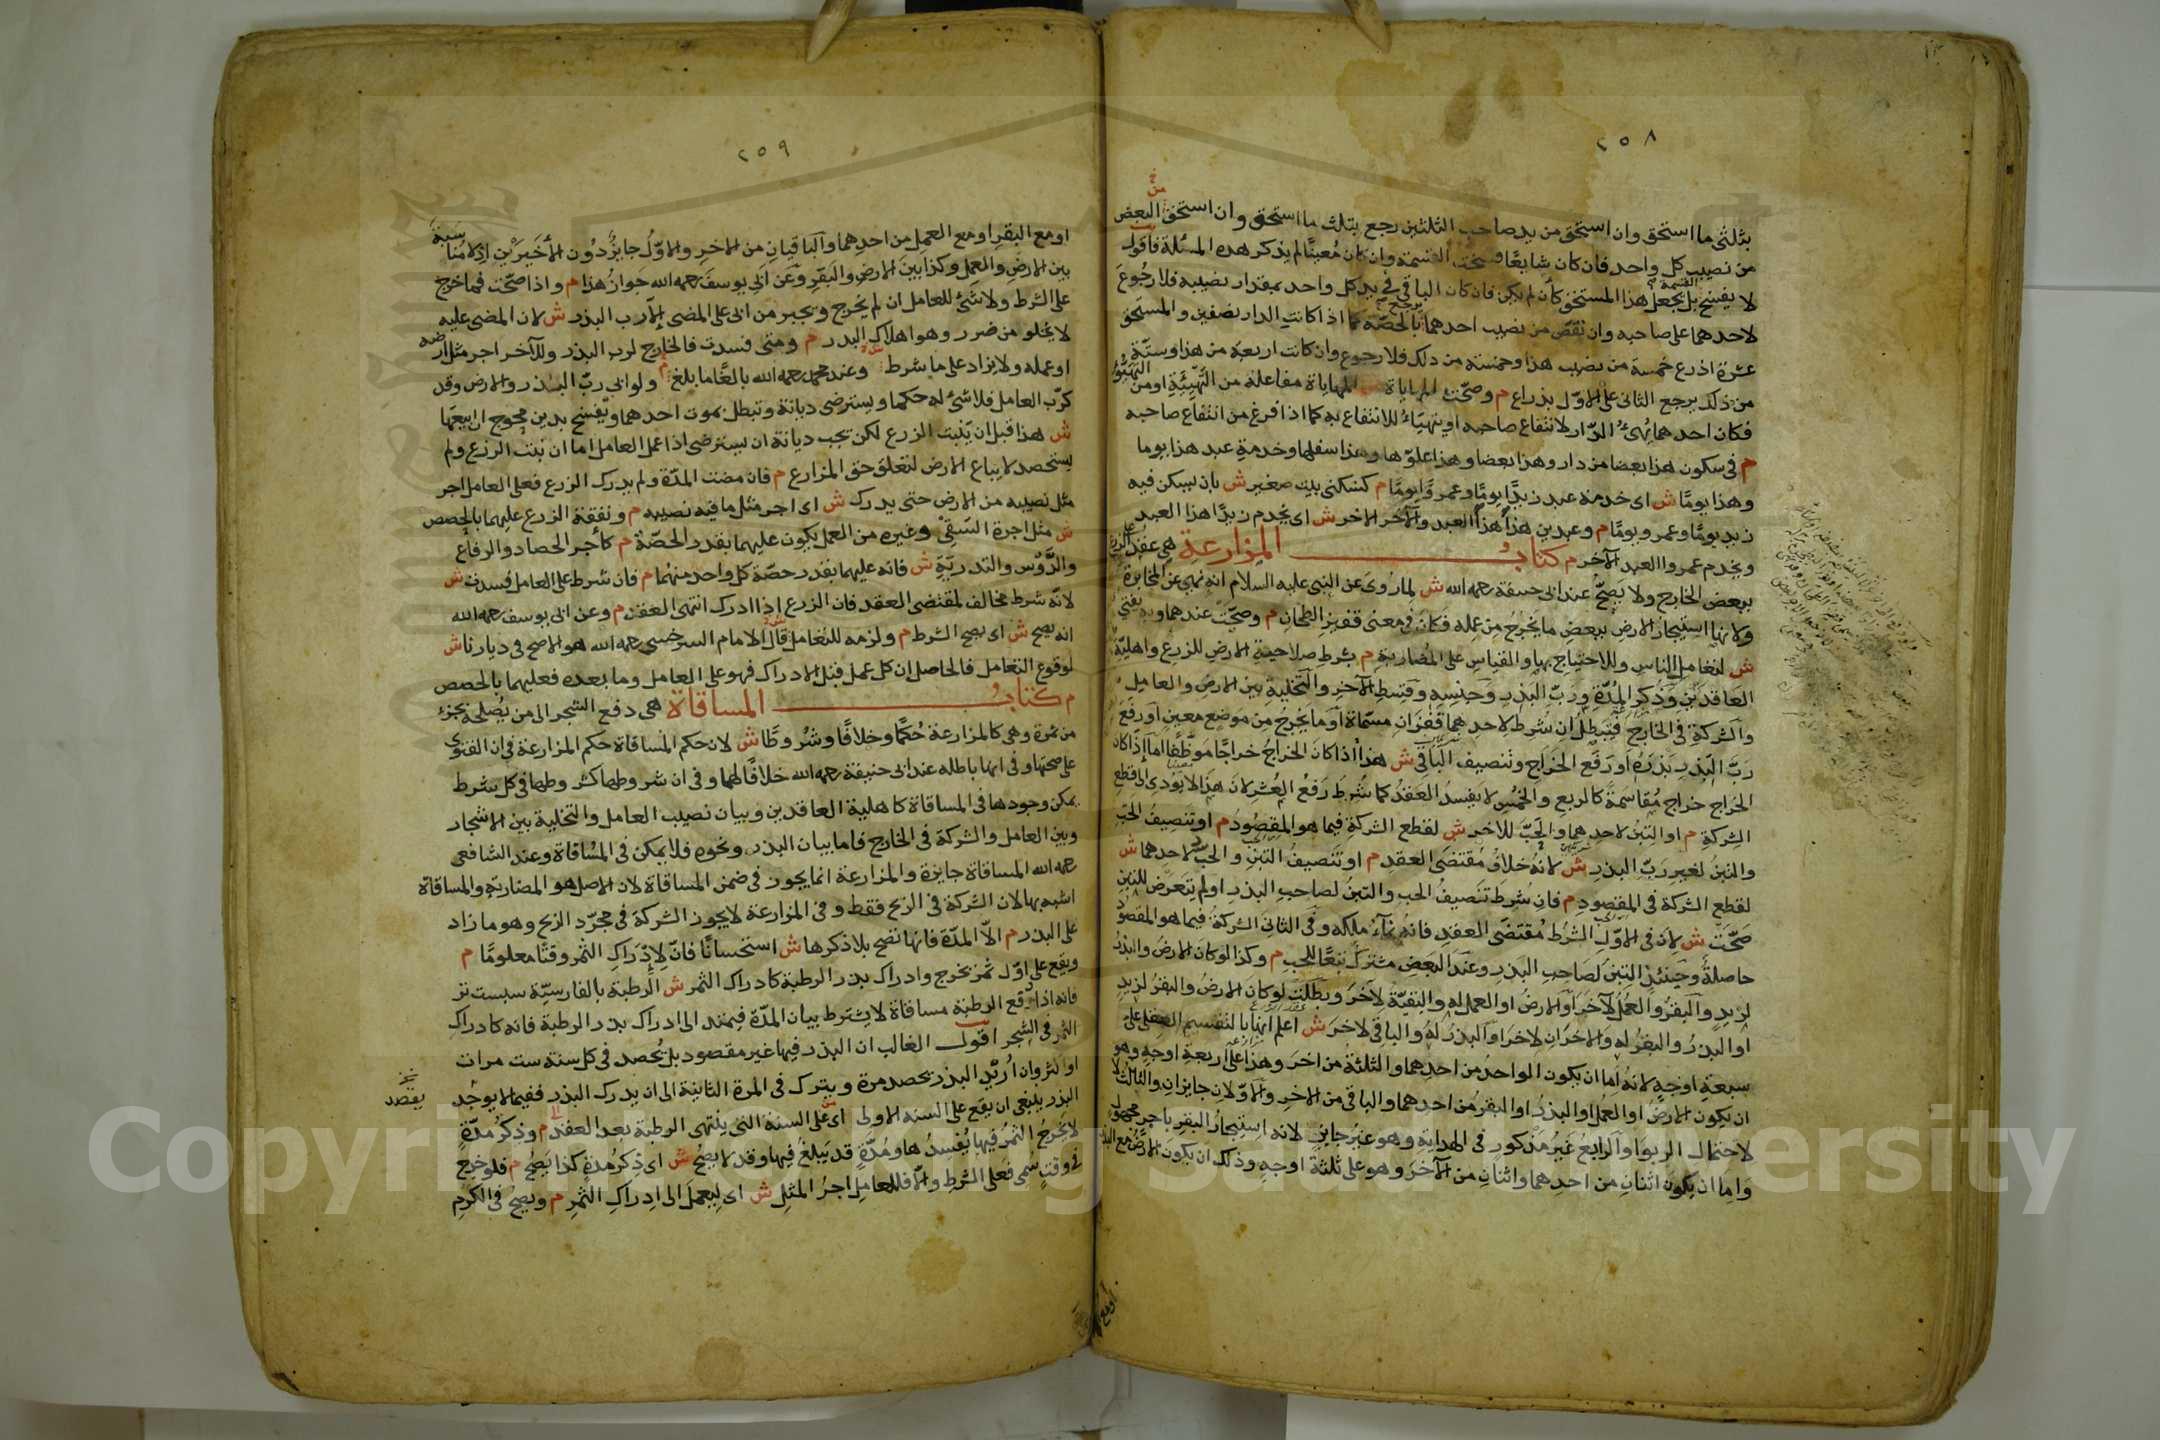 ٢٥٨
بثلثى ما استحق وان استحق من يد صاحب الثلثين رجع بثلث ما استحق وان استحق البعض
من نصيب كل واحد فان كان شايعًا فسخت القسمة وان كان مُعينًا لم يذكر هذه المسئلة فاقول
لا يفسخ بل يجعل هذا المستحق كأن لم يكن فان كان الباقى فى يد كل واحد بمقدار نصيبه فلا رجُوعَ
لاحدهما على صاحبه وان نقص من نصيب احدهما يرجع بالحصّة كما اذا كانت الدار نصفين والمستحق
عشرة اذرع خمسة من نصيب هذا وخمسة من ذلك فلا رجوع وان كانت اربعة من هذا وستّة
من ذلك يرجع الثانى على الاوّل بذراع م وصحّت المهاياة ش المهاياة مفاعلة من التّهيِئَةِ اومن التهيُّؤ
فكان احدهما يُهيئ الدّار لانتفاع صاحبه او يتهيّاءُ للانتفاع به كما اذا فرغ من انتفاع صاحبه
م فى سكون هذا بعضا من دار وهذا بعضا وهذا علوّها وهذا سفلها وخدمة عبد هذا يوما
وهذا يومًا ش اى خدمة عبد زيدًا يومًا وعمروًا يومًا م كسكنى بيت صغير ش بان يسكن فيه
زيد يومًا وعمرو يومًا م وعبدين هذا هذا العبد والآخر الاخر ش اى يخدم زيدًا هذا العبد
ويخدم عمروا العبد الآخر م كتابُ المزارعة هى عقد الزرع
ببعض الخارج ولا يَصِحّ عند ابى حنيفة رحمه الله ش لما رُوىَ عن النبى عليه السلام انه نهى عن المخابرة
ولانها استيجار الارض ببعض ما يخرُجُ مِن عمله فكان فى معنى قفيز الطحان م وصحّت عندهما وبه يفتى
ش لتعامل الناس وللاحتياج بها والقياس على المُضاربة م بشرط صلاحية الارض للزرع واهليّة
العاقدَيْن وذكرِ المُدّة ورَبّ البذر وجنسِه وقسط الآخر والتخلية بين الارض والعامل
والشركة فى الخارج فتبطل ان شرط لاحدهما قُفْزَان مسمّاة او ما يخرجُ من موضع معين او رفع
رَبّ البذر بَذرَهُ او رَفع الخراج وتنصيف الباقى ش هذا اذا كان الخراجُ خراجًا موظَّفًا اما اذا كان
الخراج خراج مُقاسمة كالربع والخمس لا يفسدُ العقدُ كما شُرِطَ رَفعُ العشر لانّ هذا لا يؤدى الى قطع
الشركة م او التبنُ لاحدهما والحَبّ للآخر ش لقطع الشركةِ فيما هو المقصُود م او تنصيفُ الحَبّ
والتبنُ لغير رَبّ البذر ش لانهُ خلافُ مُقتضَى العقد م او تنصيفُ التبنِ والحَبُّ لاحدهما ش
لقطع الشركة فى المقصود م فان شُرط تنصيفُ الحب والتبنُ لصاحب البذر او لم يتعرّض للتبن
صحّت ش لان فى الاوّل الشرط مُقتضَى العقد فانهُ نمآءُ ملكه وفى الثانى الشركة فيما هو المقصود
حاصلةٌ وحينئذٍ التبنُ لصاحب البذر وعند البعض مشترك تبعًا للحب م وكذا لو كان الارضُ والبذرُ
لزيدٍ والبقرُ والعمُل لآخر او الارضُ او العمل له والبقيّة لآخرَ وبطلت لو كان الارضُ والبقرُ لزيد
او البذرُ والبقرُ له والاخرَانِ لآخر او البذرُ لهُ والباقى لآخرَ ش اعلم انها بالتقسيم العقلى على
سبعةِ اوجهٍ لانهُ إمّا ان يكون الواحدُ من احدهما والثلثةُ من آخر وهذا على اربعة اوجهٍ وهو
ان يكون الارضُ او العمُل او البذرُ او البقرُ من احدهما والباقى من الاخر والاوّلان جايزانِ والثالثُ لا
لاحتمال الربوَا والرّابعُ غيرُ مذكور فى الهداية وهو غيرُ جايز لانه استيجارُ البقر باجرٍ مجهول
وَامّا ان يكون اثنانِ من احدهما واثنانِ من الآخر وهو على ثلثة اوجهٍ وذلك ان يكون الارضُ مع البذر
٢٥٩
او مع البقر او مع العمل من احدهما والباقيانِ من الاخر والاوّلُ جايزٌ دُون الأخيرَيْنِ اِذ لا مُناسبة
بين الارضِ والعمل وكذا بين الارض والبقر وعن ابى يوسف رحمه الله جوازُ هذا م واذا صحّت فما خرج
على الشرط ولا شئَ للعامل ان لم يخرج ويجبر من ابى على المضى الّا رب البذر ش لان المضى عليه
لا يخلو من ضرر وهو اهلاك البذر م ومتى فسدت فالخارج لرب البذر وللآخر اجر مثل ارضه
او عمله ولا يزاد على ما شرط وعند محمد رحمه الله بالغًا ما بلغ م ولو ابى ربّ البذر والارض وقد
كرَب العامل فلا شئَ له حكما ويسترضى ديانة وتبطل بموت احدهما ويُفسخ بدين محوج الى بيعها
ش هذا قبل ان يَنبت الزرع لكن يجب ديانة ان يسترضى اذا عمل العامل اما ان نبت الزرع ولم
يستحصد لا يباع الارض لتعلق حق المزارع م فان مضت المدّة ولم يدرك الزرع فعلى العامل اجر
مثل نصيبه من الارض حتى يدرك ش اى اجر مثل ما فيه نصيبه م ونفقة الزرع عليهما بالحصص
ش مثل اجرة السَقى وغيره من العمل يكون عليهما بقدر الحصّة م كأجر الحصاد والرفاع
والدَّوْس والتذريَةِ ش فانه عليهما بقدر حصّة كل واحد منهُما م فان شرط على العامل فسدت ش
لانّه شرط مخالف لمقتضى العقد فان الزرع اذا ادرك انتهى العقد م وعن ابى يوسف رحمه الله
انه يصح ش اى يصح الشرط م ولزمه للتعامل قال الامام السرخسى رحمه الله هو الاصح فى ديارنا ش
لوقوع التعامل فالحاصل ان كل عمل قبل الادراك فهو على العامل وما بعده فعليهما بالحصص
م كتابُ المساقاة هى دفع الشجر الى من يُصلحه بجزءٍ
من ثمرة وهى كالمزارعة حُكمًا وخلافًا وشُروطًا ش لان حكم المُساقاة حكم المزارعة فى ان الفتوى
على صحتها وفى انها باطلة عند ابى حنيفة رحمه الله خلافًا لهما وفى ان شروطهما كشروطها فى كل شرط
يمكن وجودها فى المساقاة كاهلية العاقدين وبيان نصيب العامل والتخلية بين الاشجار
وبين العامل والشركة فى الخارج فاما بيان البذر ونحوه فلا يمكن فى المسُاقاة وعند الشافعى
رحمه الله المساقاة جايزة والمزارعة انما يجوز فى ضمن المساقاة لان الاصل هو المضاربة والمساقاة
اشبه بها لان الشركة فى الربح فقط وفى المزارعة لا يجوز الشركة فى مجرّد الربح وهو ما زاد
على البذر م الّا المدّة فانها تصح بلا ذكرها ش استحسانًا فانّ لإِدْرَاكِ الثمر وقتًا معلومًا م
ويقع على اوّل ثمرٍ يخرج وادراك بذر الرطبة كادراك الثمر ش الرطبة بالفارسيّة سبست تر
فانه اذا دفع الرطبة مساقاة لا يشترط بيان المدّة فيمتد الى ادراك بذر الرطبة فانه كادراك
الثمر فى الشجر اقول الغالب ان البذر فيها غير مقصود بل يُحصد فى كل سنة ست مرات
او اكثر وان اُريد البذر يحصد مرة ويترك فى المرة الثانية الى ان يدرك البذر ففيما لا يوجد
البذر ينبغى ان يقع على السنة الاولى اى على السنة التى ينتهى الرطبة بعد العقد م وذكرُ مدّةٍ
لا يخرجُ الثمرُ فيها يُفسدُها ومُدّةٍ قد يَبلغُ فيها وقد لا يصحّ ش اى ذِكرُ مُدةٍ كذا يصحّ م فلو خرج
فى وقتٍ سُمى فعلى الشرط والّا فللعامل اجرُ المثل ش اى ليعمل الى ادراكِ الثمر م ويصحّ فى الكرم
يقصد
Copyright © King Saud University